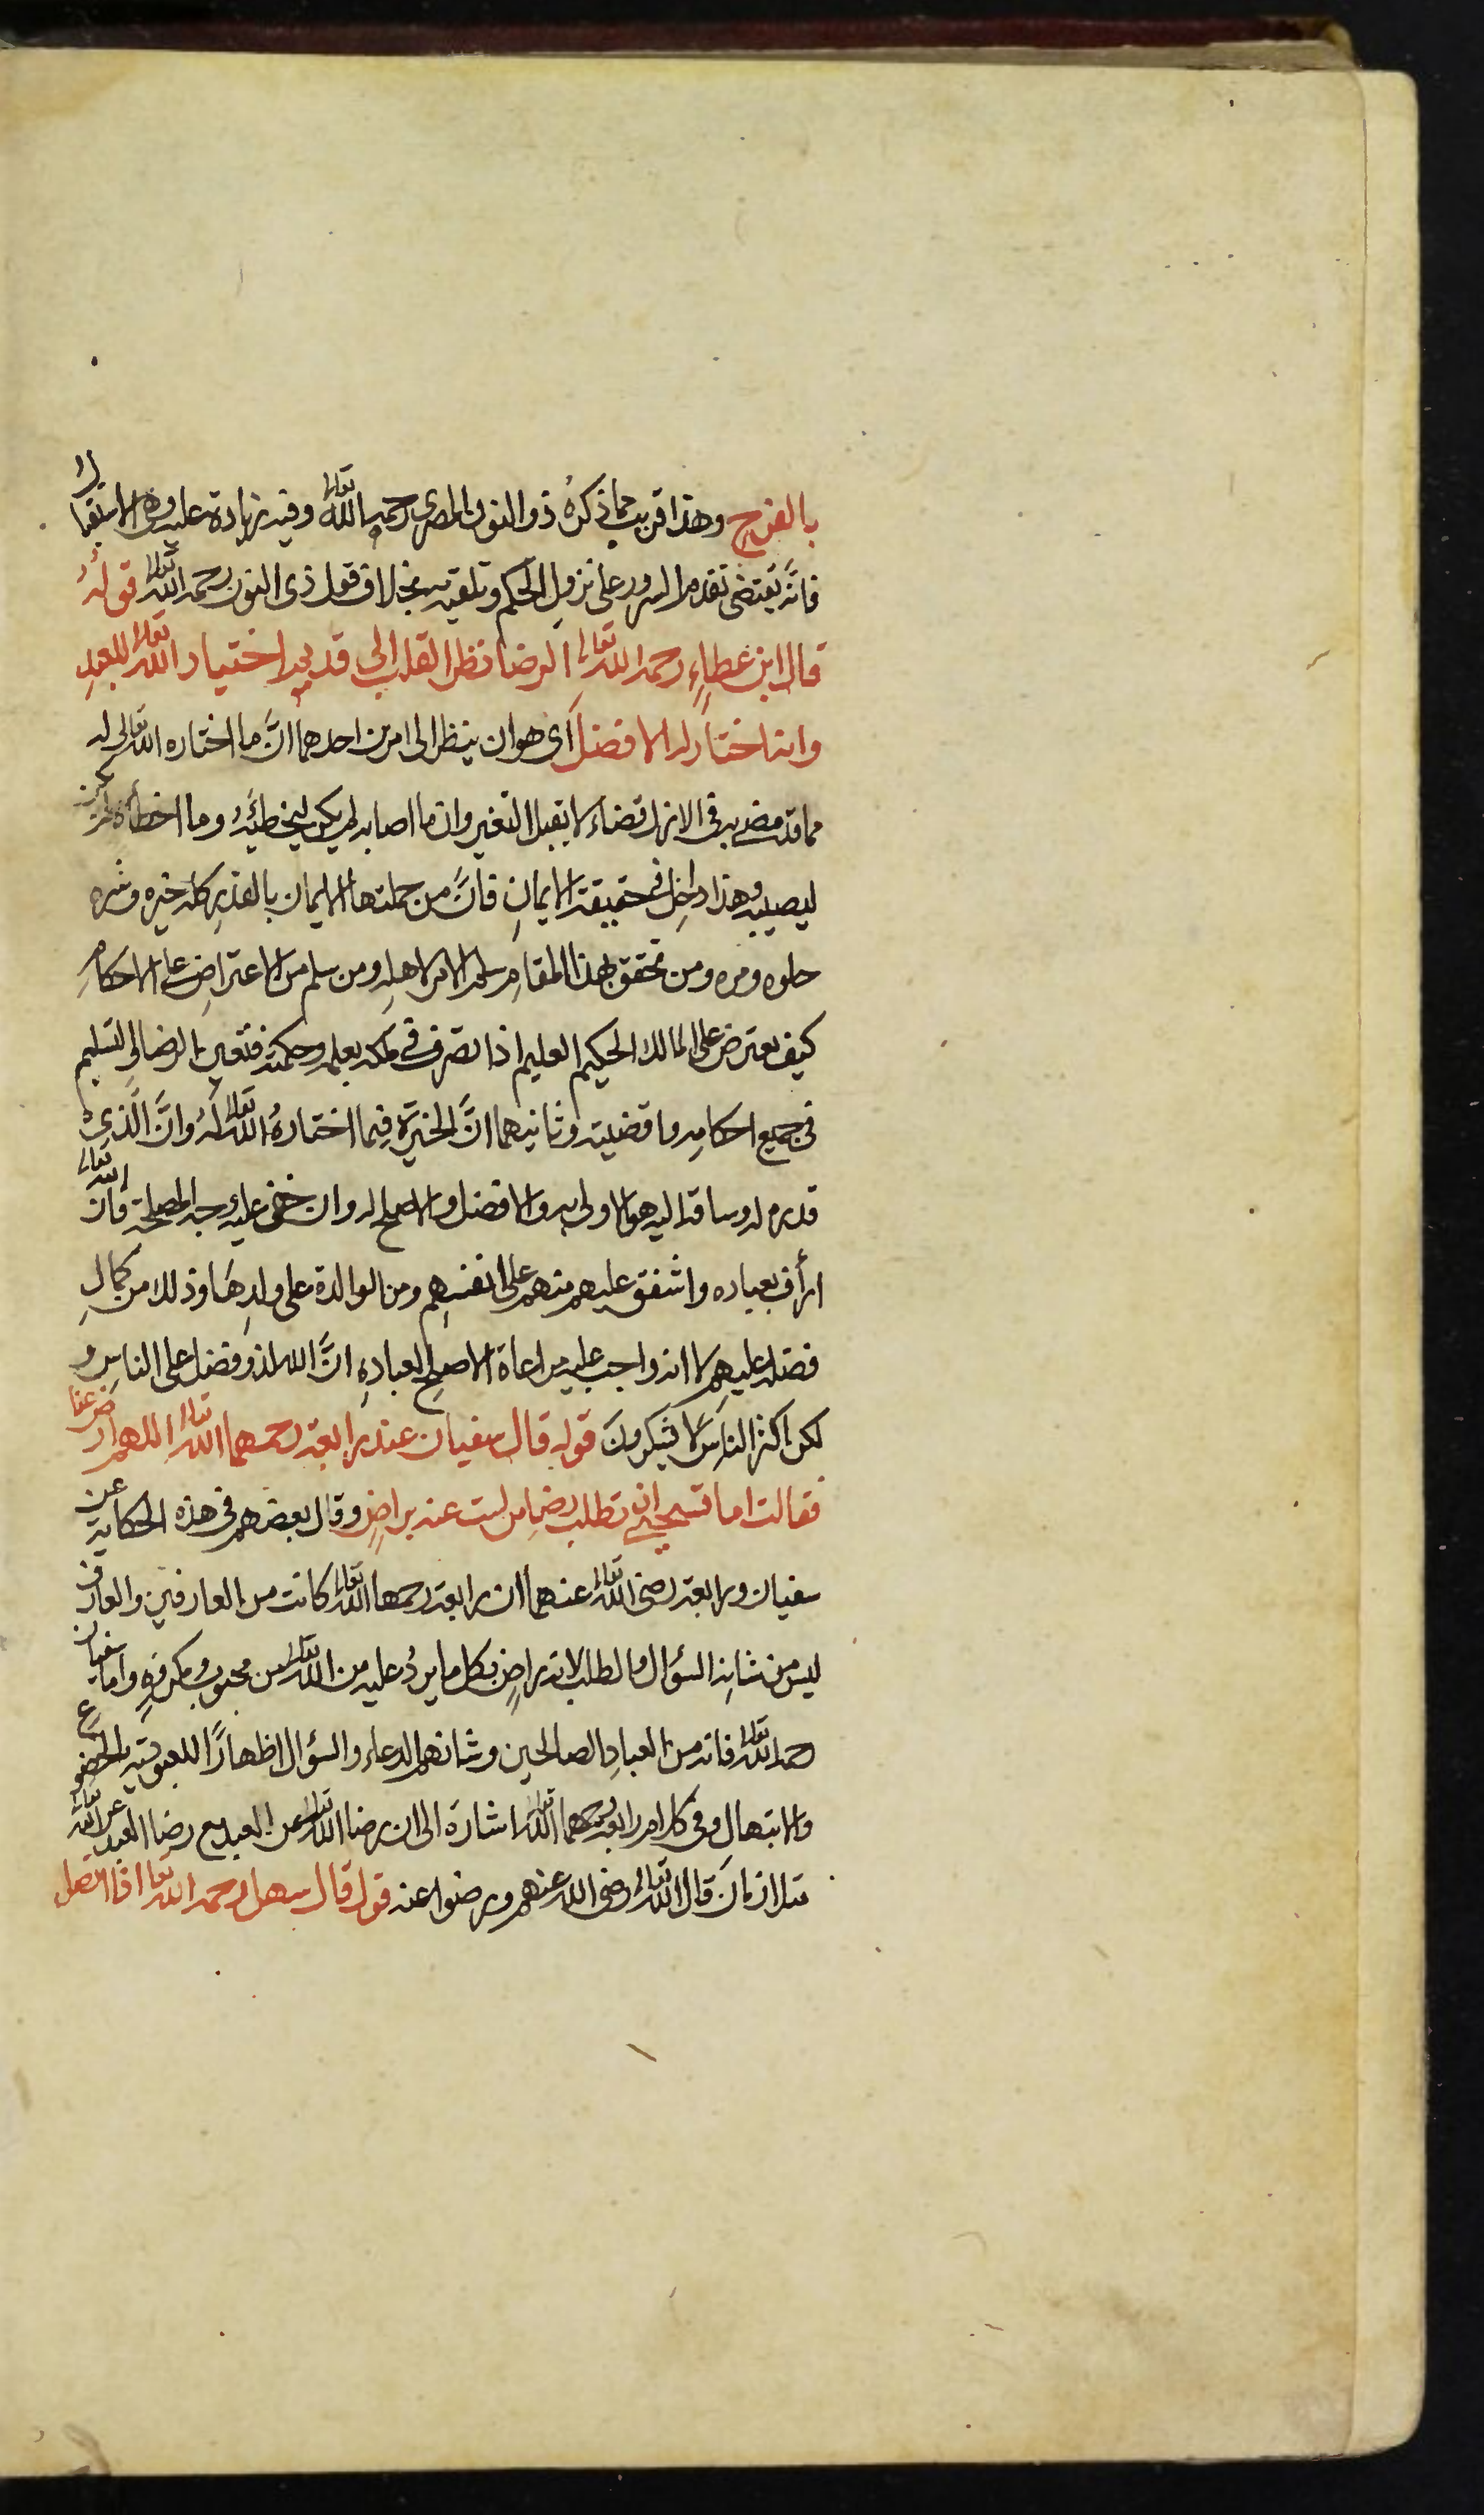 بالفرح وهذا قريب مما ذكرهُ ذو النون المصري رحمه الله تعالى وفيه زيادة عليه وهي الاستقبال
فانَّه يقتضي تقدم السرور على نزول الحكم وتلقيه بخلاف قول ذي النون رحمه الله تعالى قوله
قال ابن عطاءٍ رحمه الله تعالى الرضا نظر القلب الى قديم اختيار الله تعالى للعبدِ
وانه اختار له الافضل اى هو ان ينظر الى امرين احدهما انَّ ما اختاره الله تعالى له
مما قد مضى به في الازل قضاء لا يقبل التغير وان ما اصابه لم يكن ليخطئهُ وما اخطأه لم يكن
ليصيبه وهذا داخِل في حقيقة الايمانِ فانَّ من جملتها الايمان بالقدرِ كله خيره وشره
حلوه ومره ومن تحقق بهذا المقامِ سلم الامر لاهله ومن سلم من الاعتراضِ على الاحكامِ
كيف يعترض على المالك الحكيم العليم اذا تصرف في ملكه بعلمه وحكمته فتعين الرضا والتسليم
في جميع احكامه واقضيته وثانيهما انَّ الخيَرة فيما اختارهُ الله تعالى لهُ وانَّ الَّذي
قدره له وساقه اليه هو الاولى به والافضل والاصلح له وان خفي عليه وجه المصلحة فان الله تعالى
ارأف بعباده واشفق عليهم منهم على انفسهِم ومن الوالدة على ولدِهَا وذلك من كمالِ
فضله عليهِم لا انه واجب عليه مراعاة الاصلحِ لعبادهِ انَّ الله لذو فضل على الناسِ و
لكن اكثر الناسَ لا يشكرونَ قوله قال سفيان عند رابعة رحمهما الله تعالى اللهم ارض عنا
فقالت اما تستحيى ان تطلب رضا من لست عنه براضٍ وقال بعضهم في هذه الحكاية عن
سفيان ورابعة رضي الله تعالى عنهما ان رابعة رحمها الله تعالى كانت من العارفين والعارف
ليس من شانه السؤال والطلب لانه راضٍ بكل ما يردُ عليه من الله تعالى من محبوب ومكروهٍ واما سفيان
رحمه الله تعالى فانه من العبادِ الصالحين وشانهم الدعاء والسؤال اظهارًا للعبودية والخضوع
والابتهالِ وفي كلام رابعة رحمهما الله تعالى اشارة الى ان رضا الله تعالى عن العبد مع رضا العبد عن الله تعالى
متلازمان قال الله تعالى رضي الله عنهم ورضوا عنه قوله قال سهل رحمه الله تعالى اذا اتصل